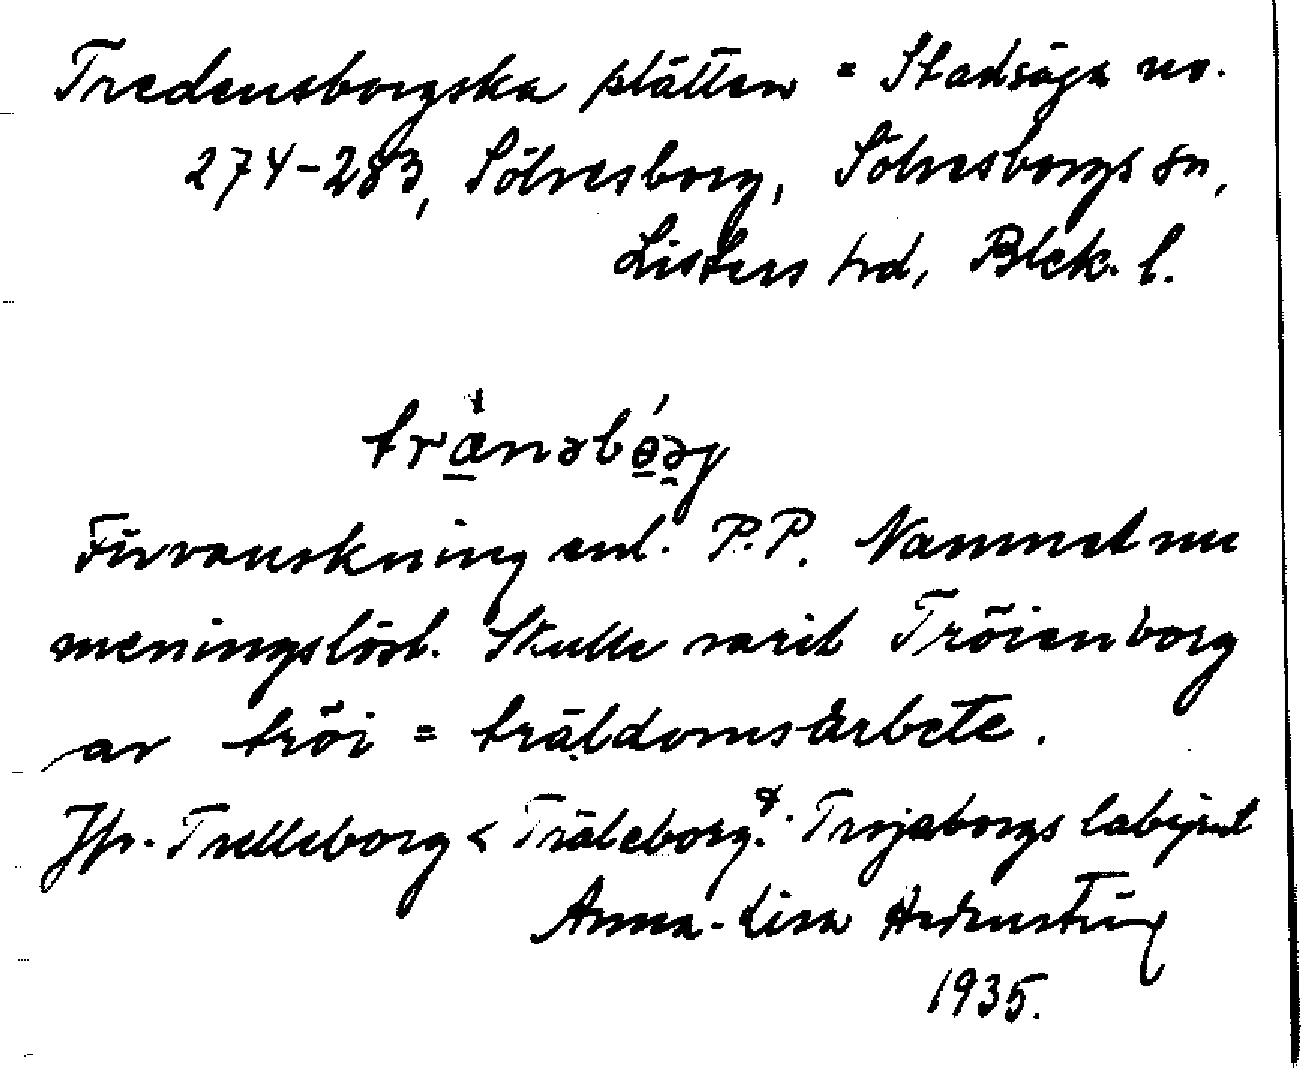 Tredensborgska plätten = Stadsäga no.
274-283, Sölvesborg, Sölvesborgs sn,
Listers hd, Blek. l.
Förvanskning enl. P.P. Namnet nu
meningslöst. Skulle varit Tröienborg
av tröi = träldomsarbete.
Jfr. Trelleborg < Träleborg. Trojaborgs labyrint
Anna-Lisa
1935.